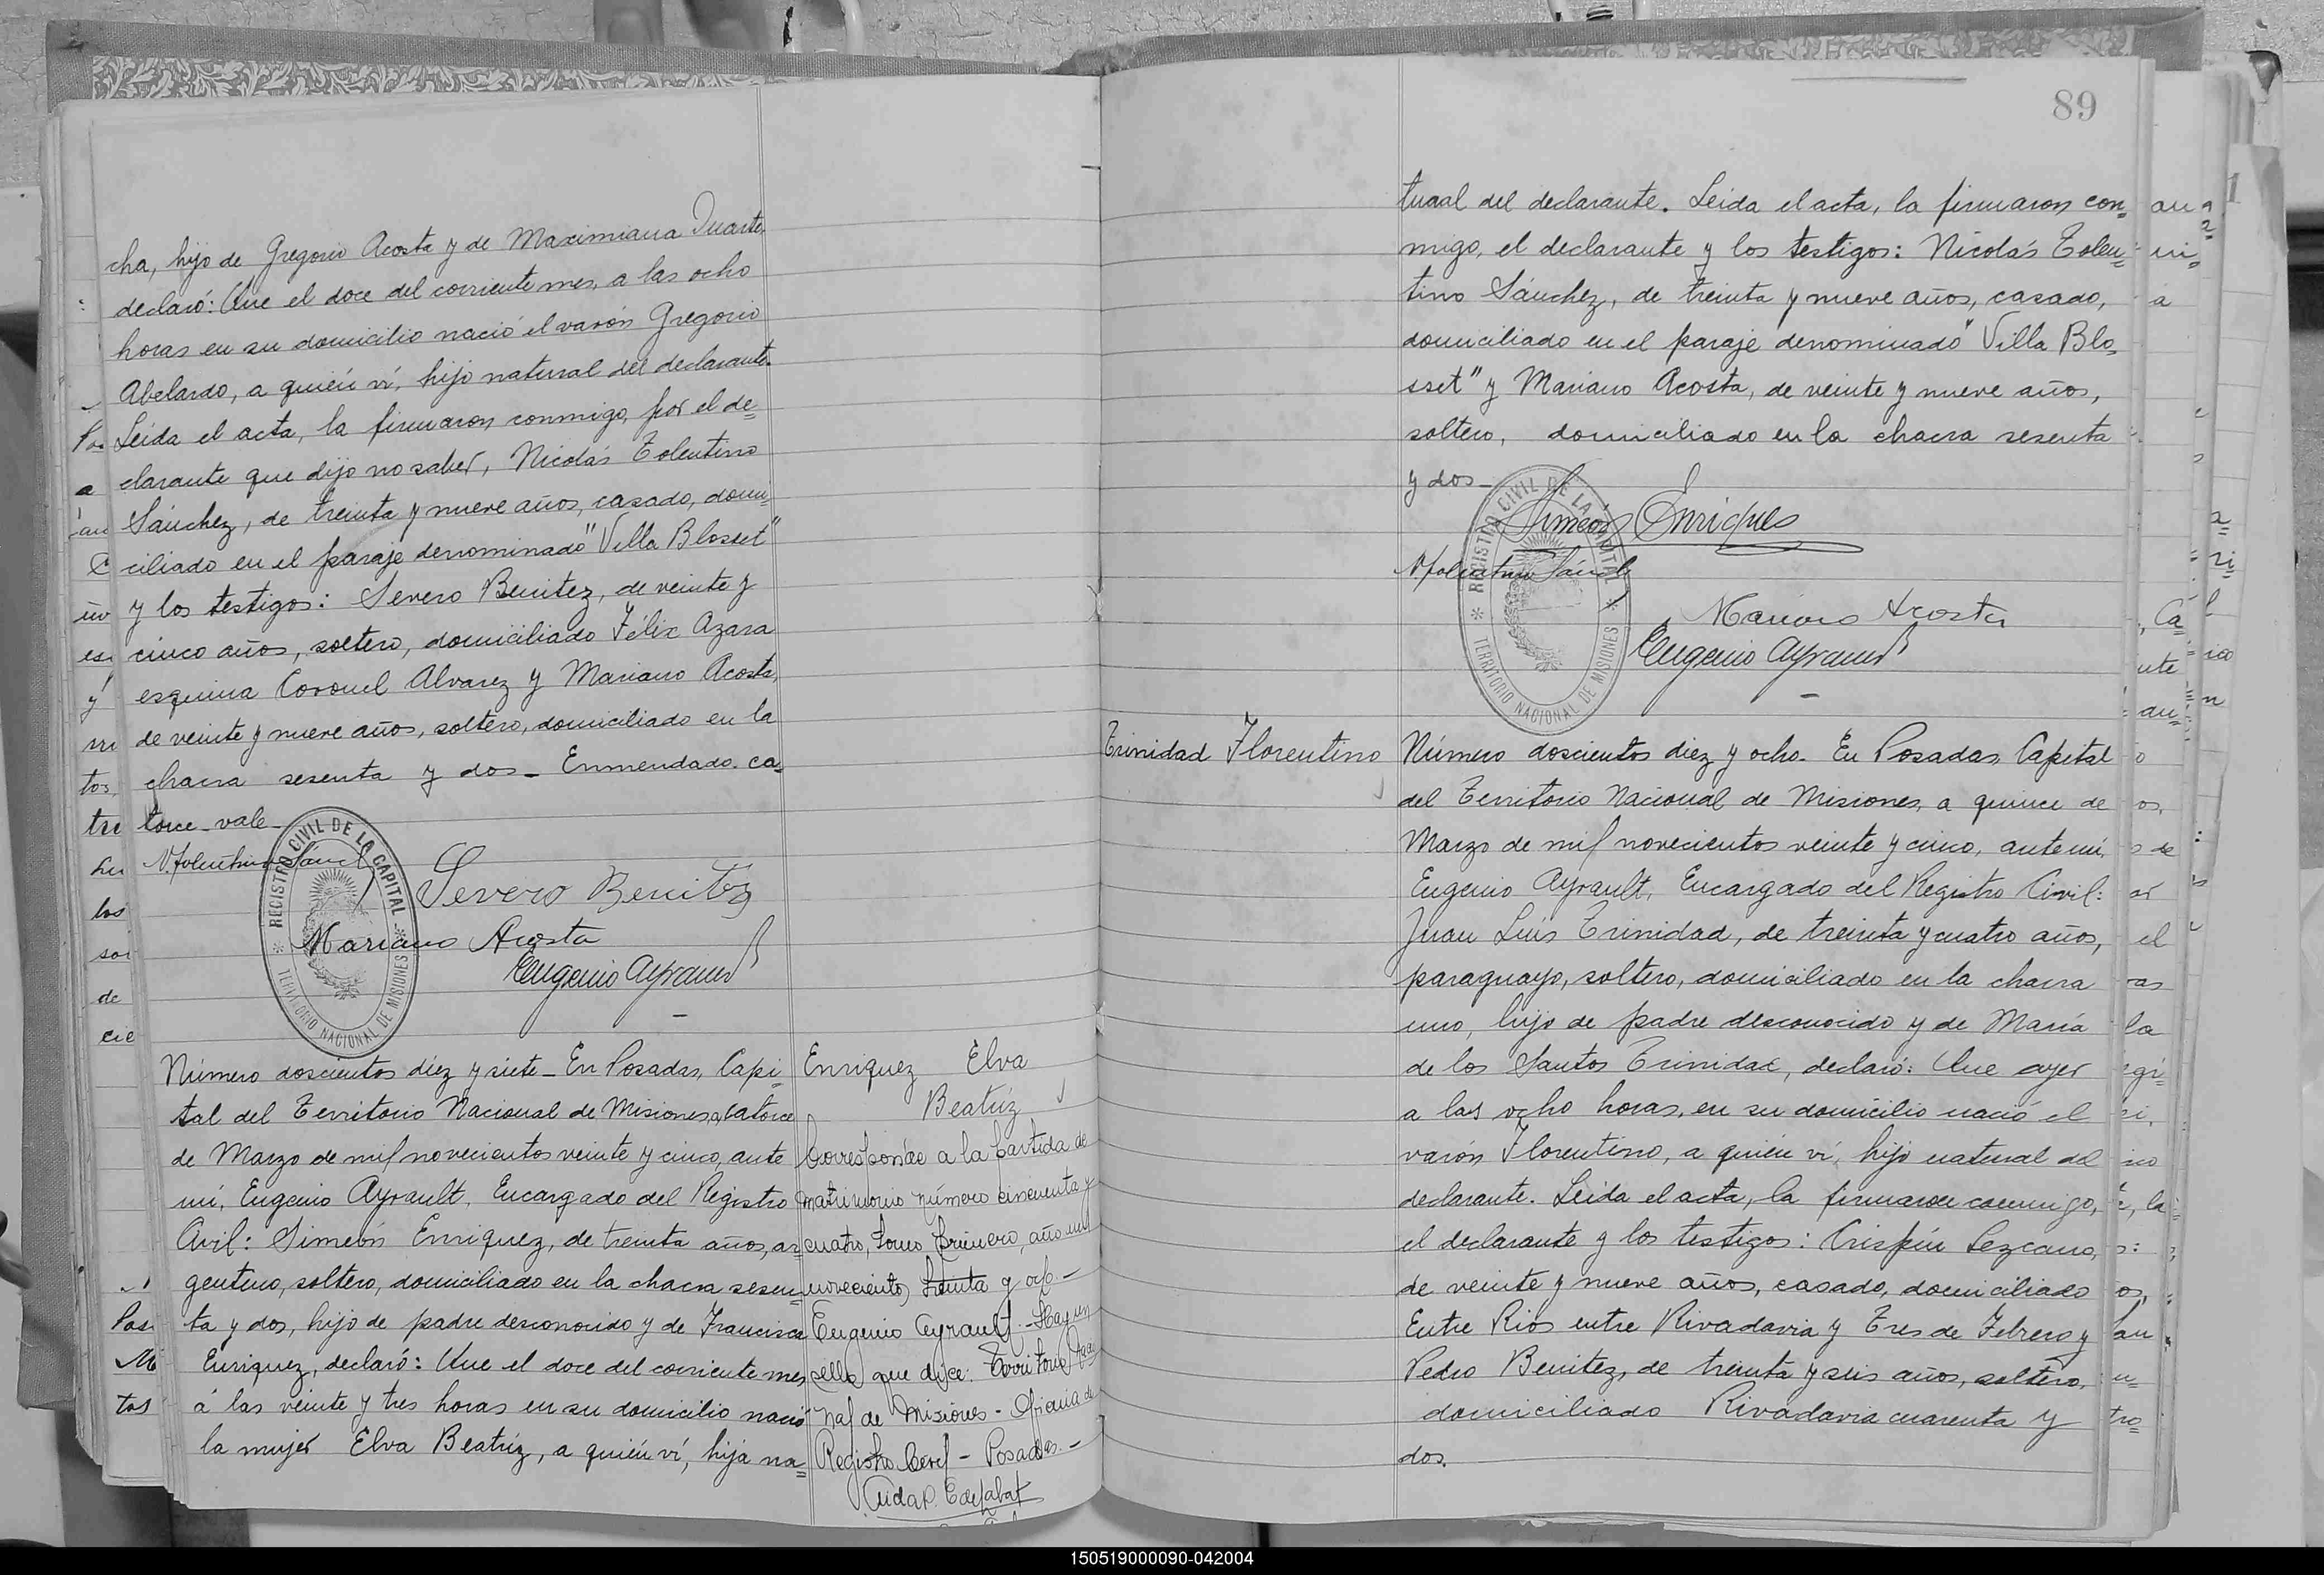 cha, hijo de Gregorio Acosta y de Maximiana Duarte
declaró: Que el doce del corriente mes, a las ocho
horas en su domicilio nació el varón Gregorio
Abelardo, a quién ví, hijo natural del declarante.
Leida el acta, la firmaron conmigo, por el de=
clarante que dijo no saber, Nicolás Tolentino
Sánchez, de treinta y nueve años, casado, domi=
ciliado en el paraje denominado "Villa Blosset"
y los testigos: Severo Benitez, de veinte y
cinco años, soltero, domiciliado Félix Azara
esquina Coronel Alvarez y Mariano Acosta,
de veinte y nueve años, soltero, domiciliado en la
chacra sesenta y dos_ Enmendado. ca=
torce_vale_
N. Tolentino Sánch
Severo Benitez
Mariano Acosta
Eugenio Ayrault
* REGISTRO CIVIL DE LA CAPITAL *
TERRITORIO NACIONAL DE MISIONES
Número doscientos diez y siete_ En Posadas, Capi=
tal del Territorio Nacional de Misiones, a catorce
de Marzo de mil novecientos veinte y cinco, ante
mí, Eugenio Ayrault, Encargado del Registro
Civil: Simeón Enriquez, de treinta años, ar=
gentino, soltero, domiciliado en la chacra sesen=
ta y dos, hijo de padre desconocido y de Francisca
Enriquez, declaró: Que el doce del corriente mes
á las veinte y tres horas en su domicilio nació
la mujer Elva Beatríz, a quién ví, hija na=
Enriquez Elva
Beatríz
Corresponde a la partida de
matrimonio número cincuenta y
cuatro, tomo primero, año mil
novecientos treinta y ocho-
Eugenio Ayrault - Hay un
sello que dice: Territorio Nacio
nal de Misiones - Oficina de
Registro Civil - Posadas.-
89
tural del declarante. Leida el acta, la firmaron con=
migo, el declarante y los testigos: Nicolás Tolen=
tino Sánchez, de treinta y nueve años, casado,
domiciliado en el paraje denominado "Villa Blo=
sset" y Mariano Acosta, de veinte y nueve años,
soltero, domiciliado en la chacra sesenta
y dos_
Simeon Enriques
N. Tolentino Sánch
Mariano Acosta
Eugenio Ayrault
* REGISTRO CIVIL DE LA CAPITAL *
TERRITORIO NACIONAL DE MISIONES
Trinidad Florentino
Número doscientos diez y ocho_ En Posadas, Capital
del Territorio Nacional de Misiones, a quince de
Marzo de mil novecientos veinte y cinco, ante mí,
Eugenio Ayrault, Encargado del Registro Civil:
Juan Luis Trinidad, de treinta y cuatro años,
paraguayo, soltero, domiciliado en la chacra
uno, hijo de padre desconocido y de María
de los Santos Trinidad, declaró: Que ayer
a las ocho horas, en su domicilio nació el
varón Florentino, a quién ví, hijo natural del
declarante. Leida el acta, la firmaron conmigo,
el declarante y los testigos: Crispín Lezcano,
de veinte y nueve años, casado, domiciliado
Entre Rios entre Rivadavia y Tres de Febrero y
Pedro Benitez, de treinta y seis años, soltero,
domiciliado Rivadavia cuarenta y
dos.
150519000090-042004